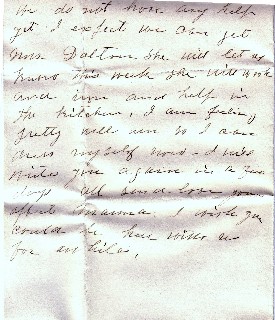 we do not have any help
yet I expect we can get
Mrs Dalton. She will let us
know this week she will wash
and iron and help in
the kitchen, I am feeling
pretty well now so I can
dress myself now - I will
write you again in a few
days all send love your
affect Mamma I wish you
could be here with us
for awhile.